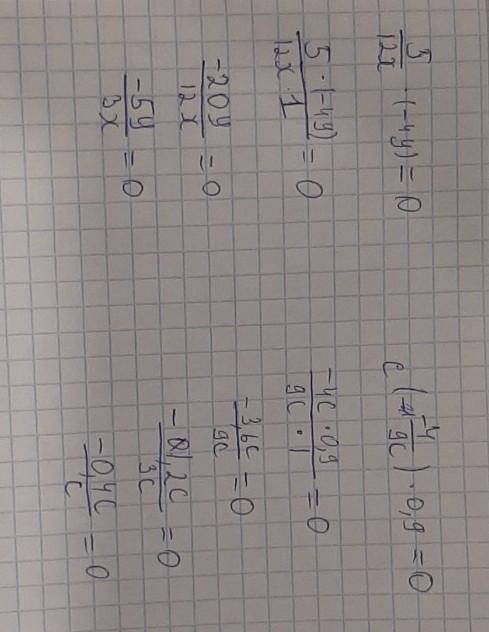 5/12x · (-4y) = 0
5 · (-4y)/12x · 1 = 0
-20y/12x = 0
-5y/3x = 0
c (-4/9c) · 0,9 = 0
-4c · 0,9/9c · 1 = 0
-3,6c/9c = 0
-1,2c/3c = 0
-0,4c/c = 0